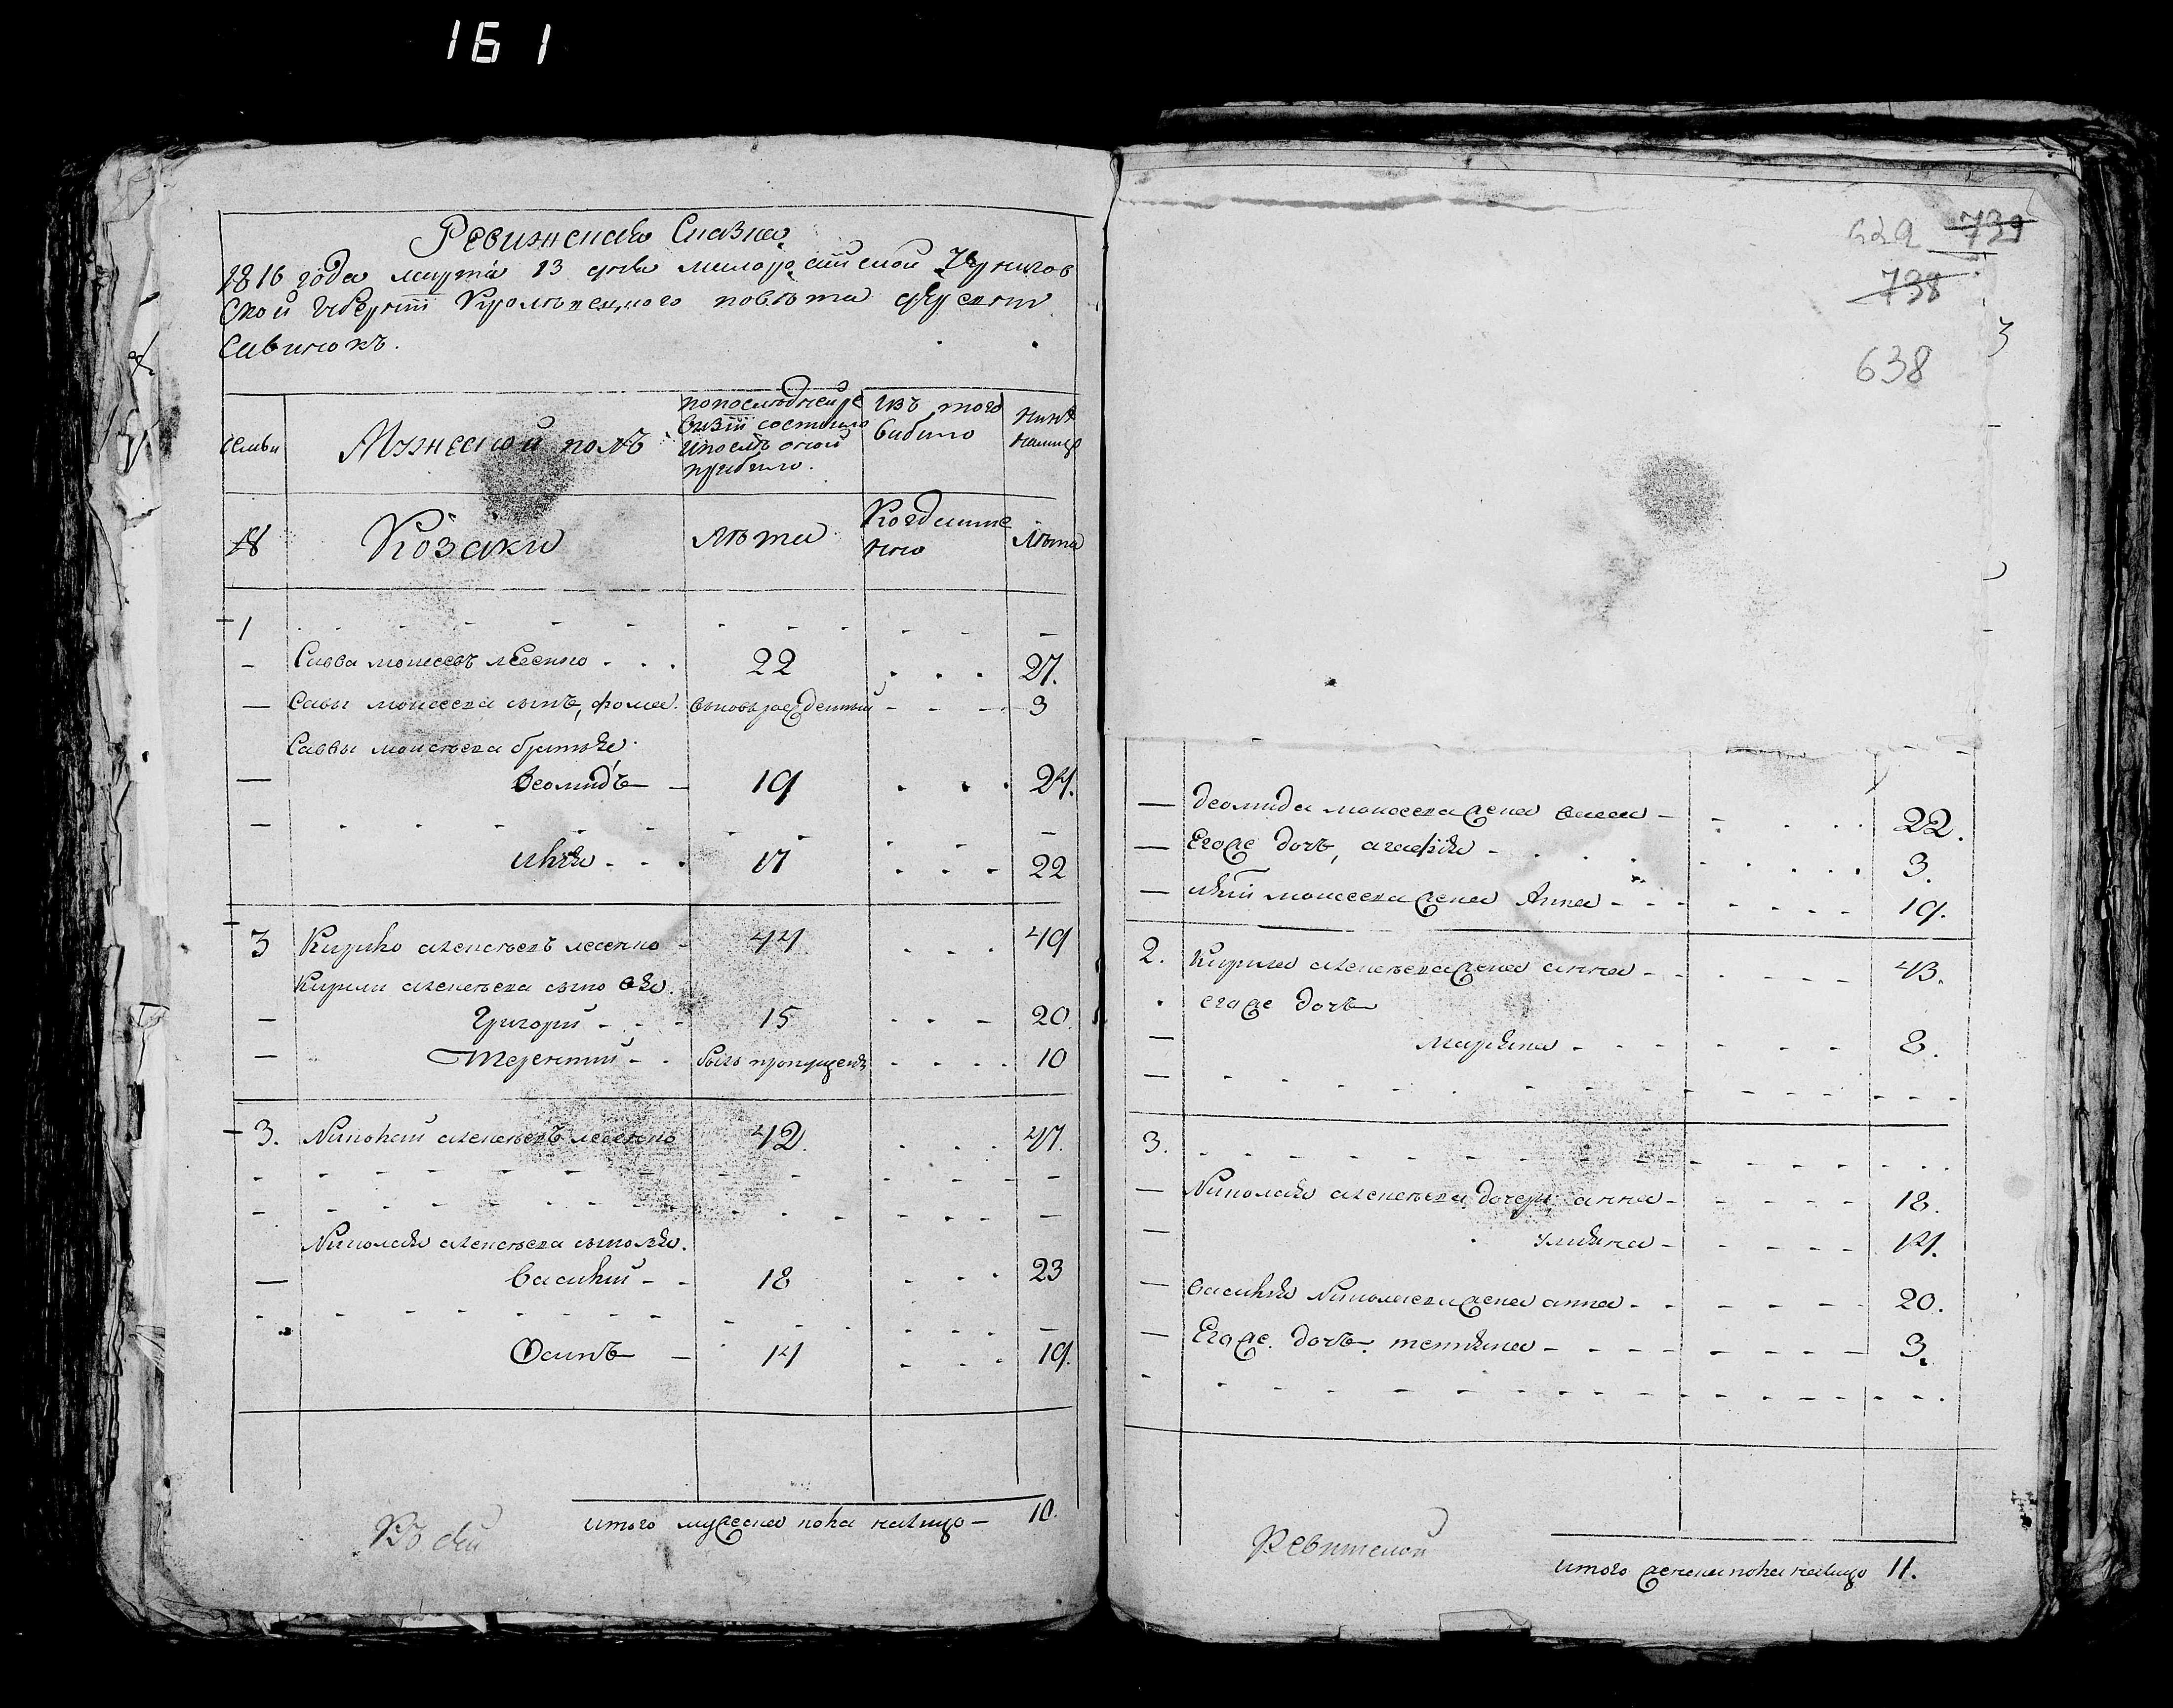 161
Ревижская Сказка
1816 года марта 13 дня малороссийской Чернигов
ской губернии Кролевецкого повета деревни
Савинокъ.
семьи
Мужеской полъ
по последней ре
визии состояло
и после оной
прибыло.
изъ того
выбыло
ныне
налицо
18
Козаки
Лѣта
Когда имя
нно
Лѣта
1
Савва моисеевъ лесенко 22 27.
Савы моисеева сынъ, фома. вновь рожденный 3
Саввы моисеева братья
Деомидъ 19 24.
илья 17 22
3 Кирило алексеевъ лесенко 44 49
Кирили алексеева сыновья
Григорий 15 20
Терентий былъ пропущенъ 10
3. Николай алексеевъ лесенко 42. 47.
Николая алексеева сыновья.
василий 18 23
Осипъ 14 19.
итого мужеска пола налицо 10.
629 739
738
638
3
деомида моисеева жена 22.
Егоже дочь, агафия 3.
илии моисеева жена Анна 19.
2. Кирила алексеева жена анна 43.
егоже дочь
марьяна 8.
3.
Николая алексеева дочери анна 18.
ульяна 14.
василия Николаева жена анна 20.
Егоже дочь татьяна 3.
Ревижской
итого женска пола налицо 11.